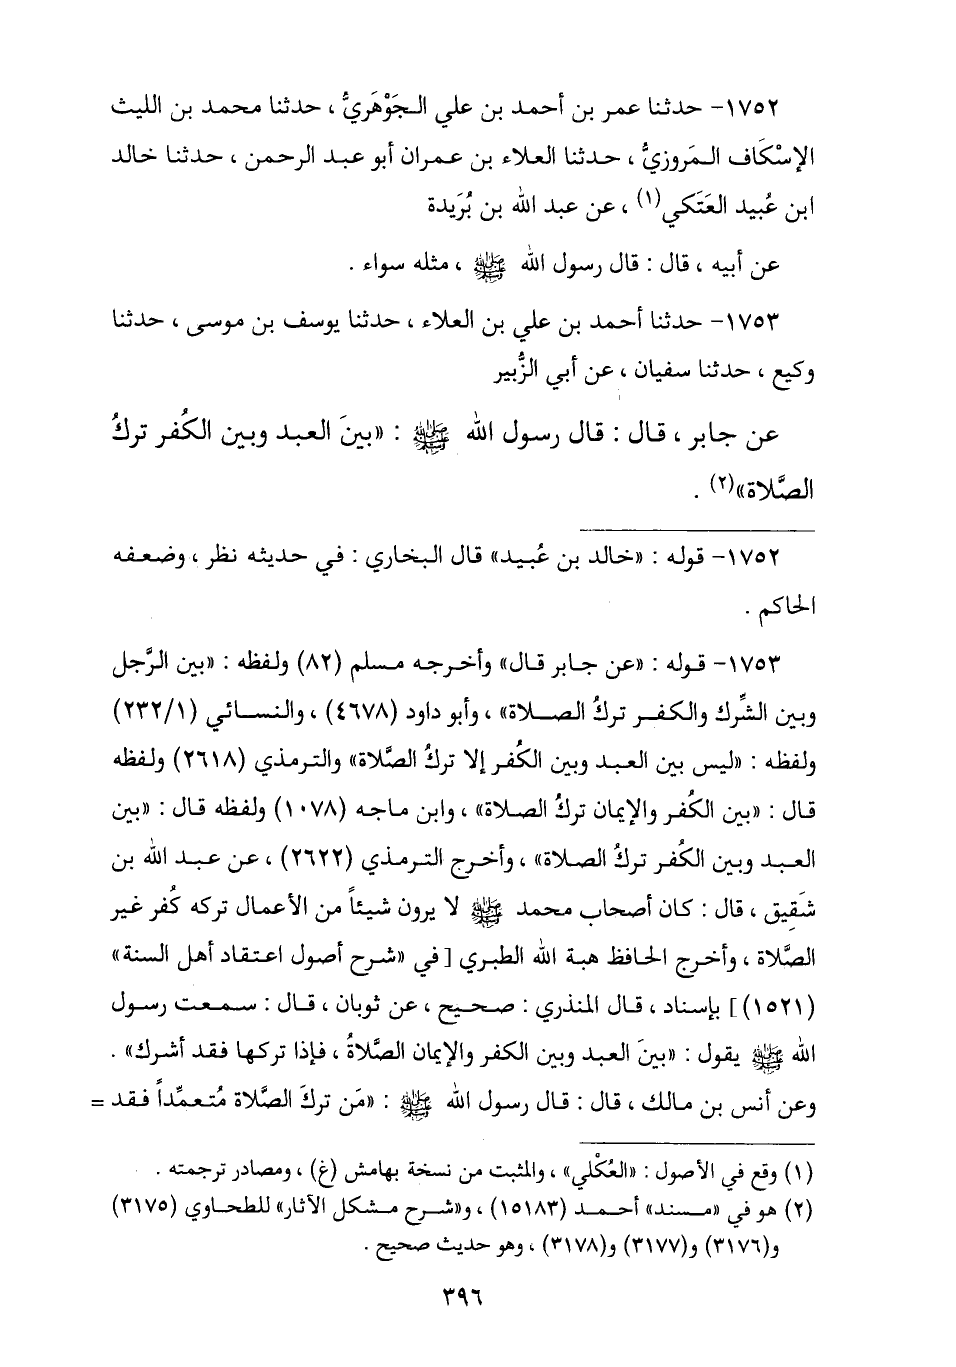 ١٧٥٢- حدثنا عمر بن أحمد بن علي الـجَوْهَريُّ ، حدثنا محمد بن الليث
الإسْكَاف الـمَروزيُّ ، حدثنا العلاء بن عمران أبو عبد الرحمن ، حدثنا خالد
ابن عُبيد العَتَكي(١) ، عن عبد الله بن بُرَيدة
عن أبيه ، قال : قال رسول الله ﷺ ، مثله سواء .
١٧٥٣- حدثنا أحمد بن علي بن العلاء ، حدثنا يوسف بن موسى ، حدثنا
وكيع ، حدثنا سفيان ، عن أبي الزُّبير
عن جابر ، قال : قال رسول الله ﷺ : «بينَ العبد وبين الكُفر تركُ
الصَّلاة»(٢) .
١٧٥٢- قوله : «خالد بن عُبيد» قال البخاري : في حديثه نظر ، وضعفه
الحاكم .
١٧٥٣- قوله : «عن جابر قال» وأخرجه مسلم (٨٢) ولفظه : «بين الرَّجل
وبين الشِّرك والكفر تركُ الصلاة» ، وأبو داود (٤٦٧٨) ، والنسائي (٢٣٢/١)
ولفظه : «ليس بين العبد وبين الكُفر إلا تركُ الصَّلاة» والترمذي (٢٦١٨) ولفظه
قال : «بين الكُفر والإيمان تركُ الصلاة» ، وابن ماجه (١٠٧٨) ولفظه قال : «بين
العبد وبين الكُفر تركُ الصلاة» ، وأخرج الترمذي (٢٦٢٢) ، عن عبد الله بن
شَقِيق ، قال : كان أصحاب محمد ﷺ لا يرون شيئاً من الأعمال تركه كُفر غير
الصَّلاة ، وأخرج الحافظ هبة الله الطبري [في «شرح أصول اعتقاد أهل السنة»
(١٥٢١)] بإسناد ، قال المنذري : صحيح ، عن ثوبان ، قال : سمعت رسول
الله ﷺ يقول : «بينَ العبد وبين الكفر والإيمان الصَّلاةُ ، فإذا تركها فقد أشرك» .
وعن أنس بن مالك ، قال : قال رسول الله ﷺ : «مَن تركَ الصَّلاة مُتعمِّداً فقد =
(١) وقع في الأصول : «العُكْلي» ، والمثبت من نسخة بهامش (غ) ، ومصادر ترجمته .
(٢) هو في «مسند» أحمد (١٥١٨٣) ، و«شرح مشكل الآثار» للطحاوي (٣١٧٥)
و(٣١٧٦) و(٣١٧٧) و(٣١٧٨) ، وهو حديث صحيح .
٣٩٦